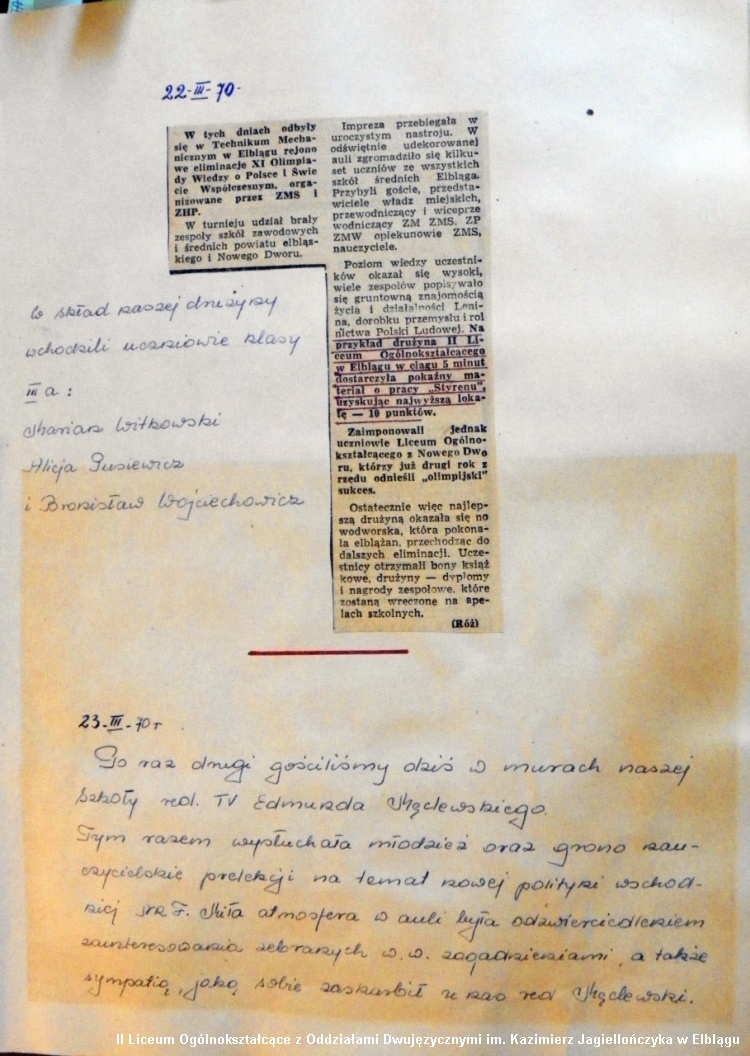 22-III-70-
W tych dniach odbyły
się w Technikum Mecha-
nicznym w Elblągu rejono
we eliminacje XI Olimpia-
dy Wiedzy o Polsce i Świe
cie Współczesnym, orga-
nizowane przez ZMS i
ZHP.
W turnieju udział brały
zespoły szkół zawodowych
i średnich powiatu elbląs-
kiego i Nowego Dworu.
Impreza przebiegała w
uroczystym nastroju. W
odświętnie udekorowanej
auli zgromadziło się kilku-
set uczniów ze wszystkich
szkół średnich Elbląga.
Przybyli goście, przedsta-
wiciele władz miejskich,
przewodniczący i wiceprze
wodniczący ZM ZMS, ZP
ZMW opiekunowie ZMS,
nauczyciele.
Poziom wiedzy uczestni-
ków okazał się wysoki,
wiele zespołów popisywało
się gruntowną znajomością
życia i działalności Leni-
na, dorobku przemysłu i rol
nictwa Polski Ludowej. Na
przykład drużyna II Li-
ceum Ogólnokształcącego
w Elblągu w ciągu 5 minut
dostarczyła pokaźny ma-
teriał o pracy „Styrenu",
uzyskując najwyższą loka-
tę — 10 punktów.
Zaimponowali jednak
uczniowie Liceum Ogólno-
kształcącego z Nowego Dwo
ru, którzy już drugi rok z
rzędu odnieśli „olimpijski"
sukces.
Ostatecznie więc najlep-
szą drużyną okazała się no
wodworska, która pokona-
ła elblążan, przechodząc do
dalszych eliminacji. Ucze-
stnicy otrzymali bony książ
kowe, drużyny — dyplomy
i nagrody zespołowe, które
zostaną wręczone na ape-
lach szkolnych.
(Róż)
W skład naszej drużyny
wchodzili uczniowie klasy
III a :
Marian Witkowski
Alicja Gusiewicz
i Bronisław Wojciechowicz
23-III-70 r
Po raz drugi gościliśmy dziś w murach naszej
szkoły red. TV Edmunda Męclewskiego.
Tym razem wysłuchała młodzież oraz grono nau-
czycielskie prelekcji na temat nowej polityki wschod-
niej NRF. Miła atmosfera w auli była odzwierciedleniem
zainteresowania zebranych w.w. zagadnieniami, a także
sympatią, jaką sobie zaskarbił u nas red Męclewski.
II Liceum Ogólnokształcące z Oddziałami Dwujęzycznymi im. Kazimierz Jagiellończyka w Elblągu